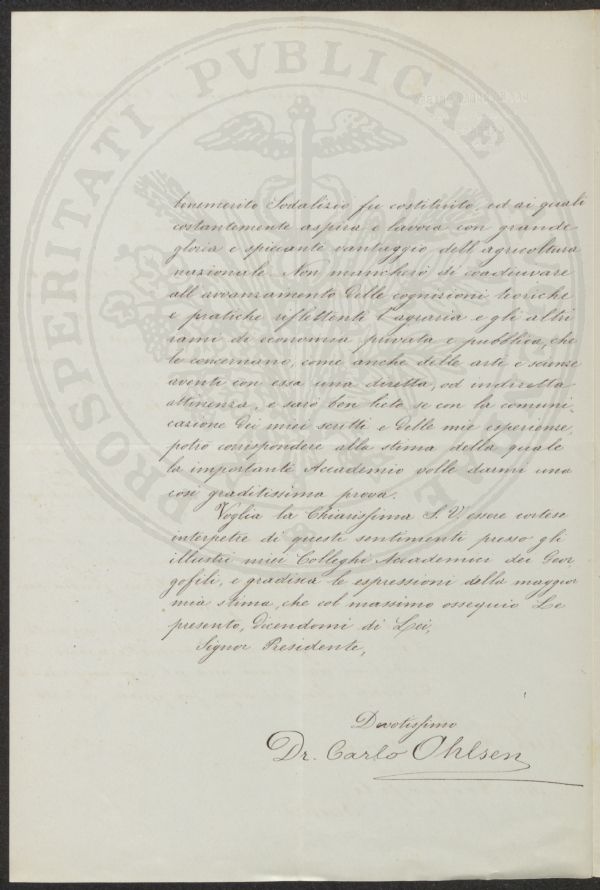 PROSPERITATI PVBLICAE
benemerito Sodalizio fu costituito, ed ai quali
costantemente aspira e lavora con grande
gloria e spiccante vantaggio dell'agricoltura
nazionale. Non mancherò di coadiuvare
all'avvanzamento delle cognizioni teoriche
e pratiche riflettenti l'agraria e gli altri
rami di economia privata e pubblica, che
le concernano, come anche delle arti e scienze
aventi con essa una diretta, od indiretta
attinenza, e sarò ben lieto se con la comuni-
cazione dei miei scritti e delle mie esperienze
potrò corrispondere alla stima della quale
la importante Accademia volle darmi una
così graditissima prova.
Voglia la Chiarissima S. V. essere cortese
interpetre di questi sentimenti presso gli
illustri miei Colleghi Accademici dei Geor
gofili, e gradisca le espressioni della maggior
mia stima, che col massimo ossequio Le
presento, dicendomi di Lei,
Signor Presidente,
Devotissimo
Dr. Carlo Ohlsen